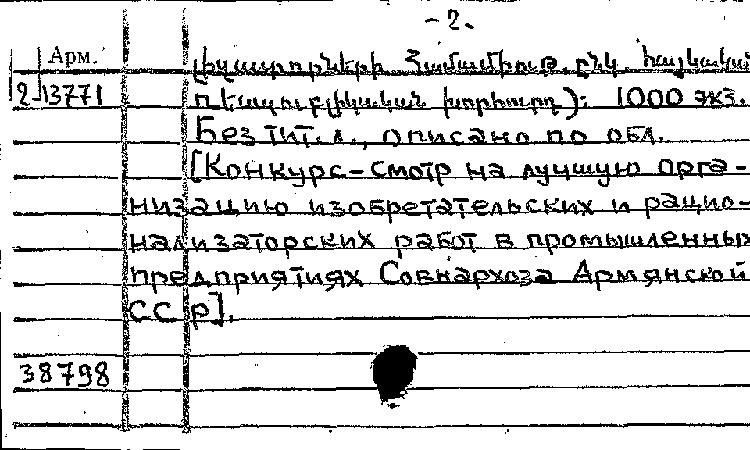 - 2.
Арм.
2-13771
Համամիութ. ընկ. հայկական
խորհուրդ): 1000 экз.
Без тит. л., описано по обл.
[Конкурс-смотр на лучшую орга-
низацию изобретательских и рацио-
нализаторских работ в промышленных
предприятиях Совнархоза Армянской
ССР].
38798